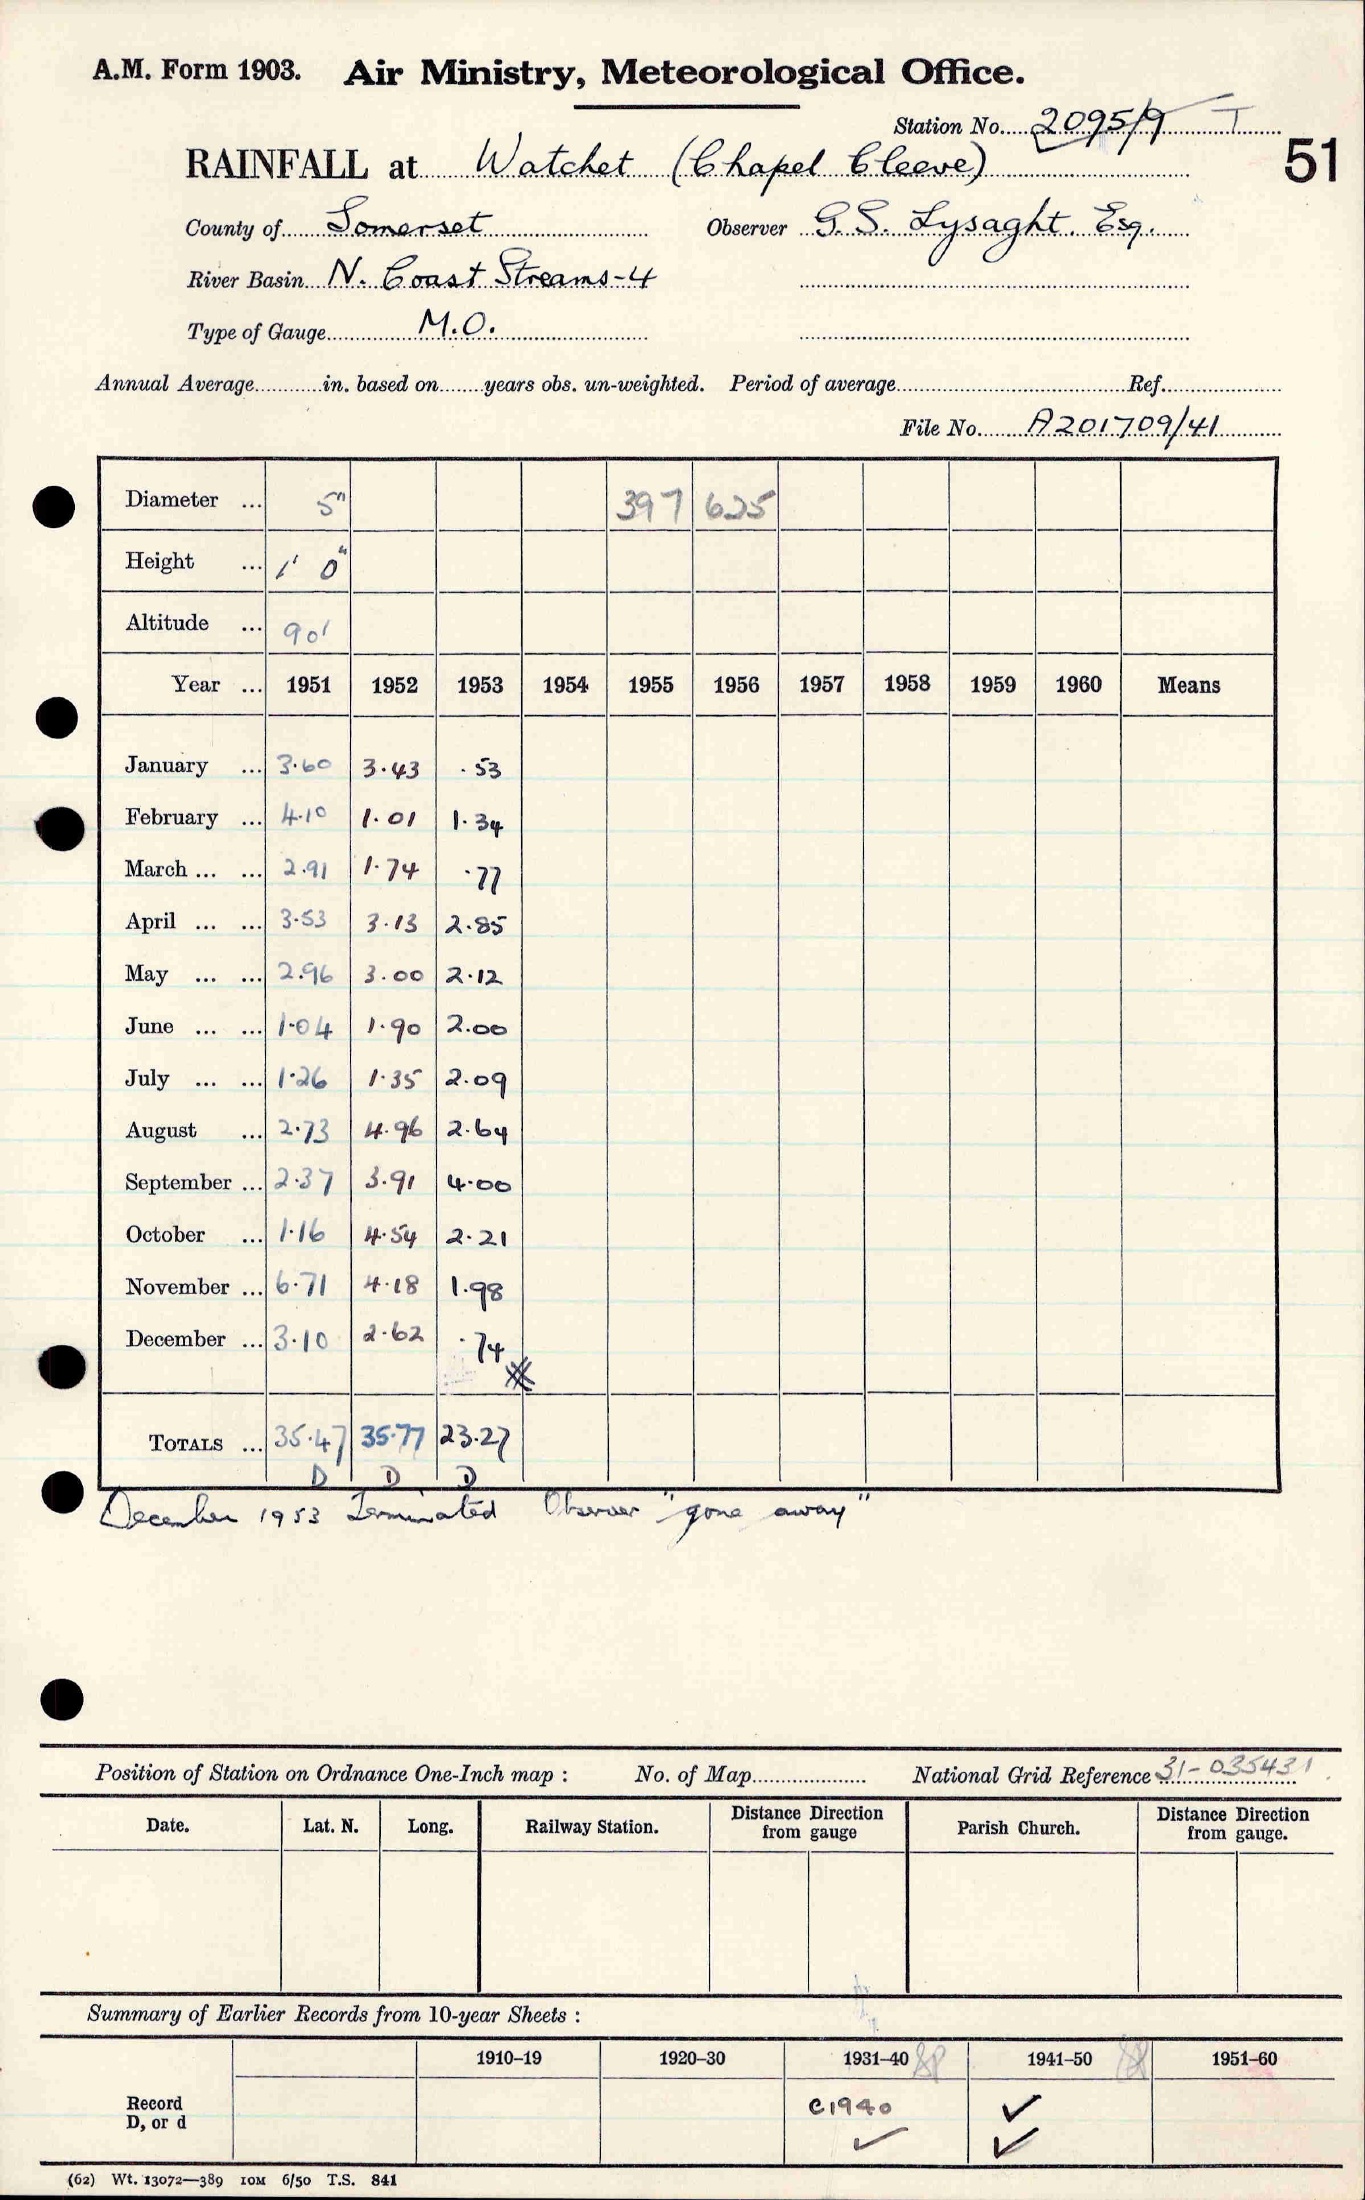 A.M. Form 1903. Air Ministry, Meteorological Office.
Station No. 2095/9 T
RAINFALL at Watchet (Chapel Cleeve) 51
County of Somerset Observer G.S. Lysaght. Esq.
River Basin N. Coast Streams-4
Type of Gauge M.O.
Annual Average in. based on years obs. un-weighted. Period of average Ref.
File No. A201709/41
Diameter ... 5" 397 625
Height ... 1' 0"
Altitude ... 90'
Year ... 1951 1952 1953 1954 1955 1956 1957 1958 1959 1960 Means
January ... 3.60 3.43 .53
February ... 4.10 1.01 1.34
March ... ... 2.91 1.74 .77
April ... ... 3.53 3.13 2.85
May ... ... 2.96 3.00 2.12
June ... ... 1.04 1.90 2.00
July ... ... 1.26 1.35 2.09
August ... 2.73 4.96 2.64
September ... 2.37 3.91 4.00
October ... 1.16 4.54 2.21
November ... 6.71 4.18 1.98
December ... 3.10 2.62 .74
TOTALS ... 35.47 35.77 23.27
D D D
December 1953 Terminated Observer "gone away"
Position of Station on Ordnance One-Inch map : No. of Map National Grid Reference 31-035431
Date. Lat. N. Long. Railway Station. Distance Direction from gauge Parish Church. Distance Direction from gauge.
Summary of Earlier Records from 10-year Sheets :
1910–19 1920–30 1931–40 1941–50 1951–60
Record C1940 ✓
D, or d ✓ ✓
(62) Wt. 13072—389 10M 6/50 T.S. 841